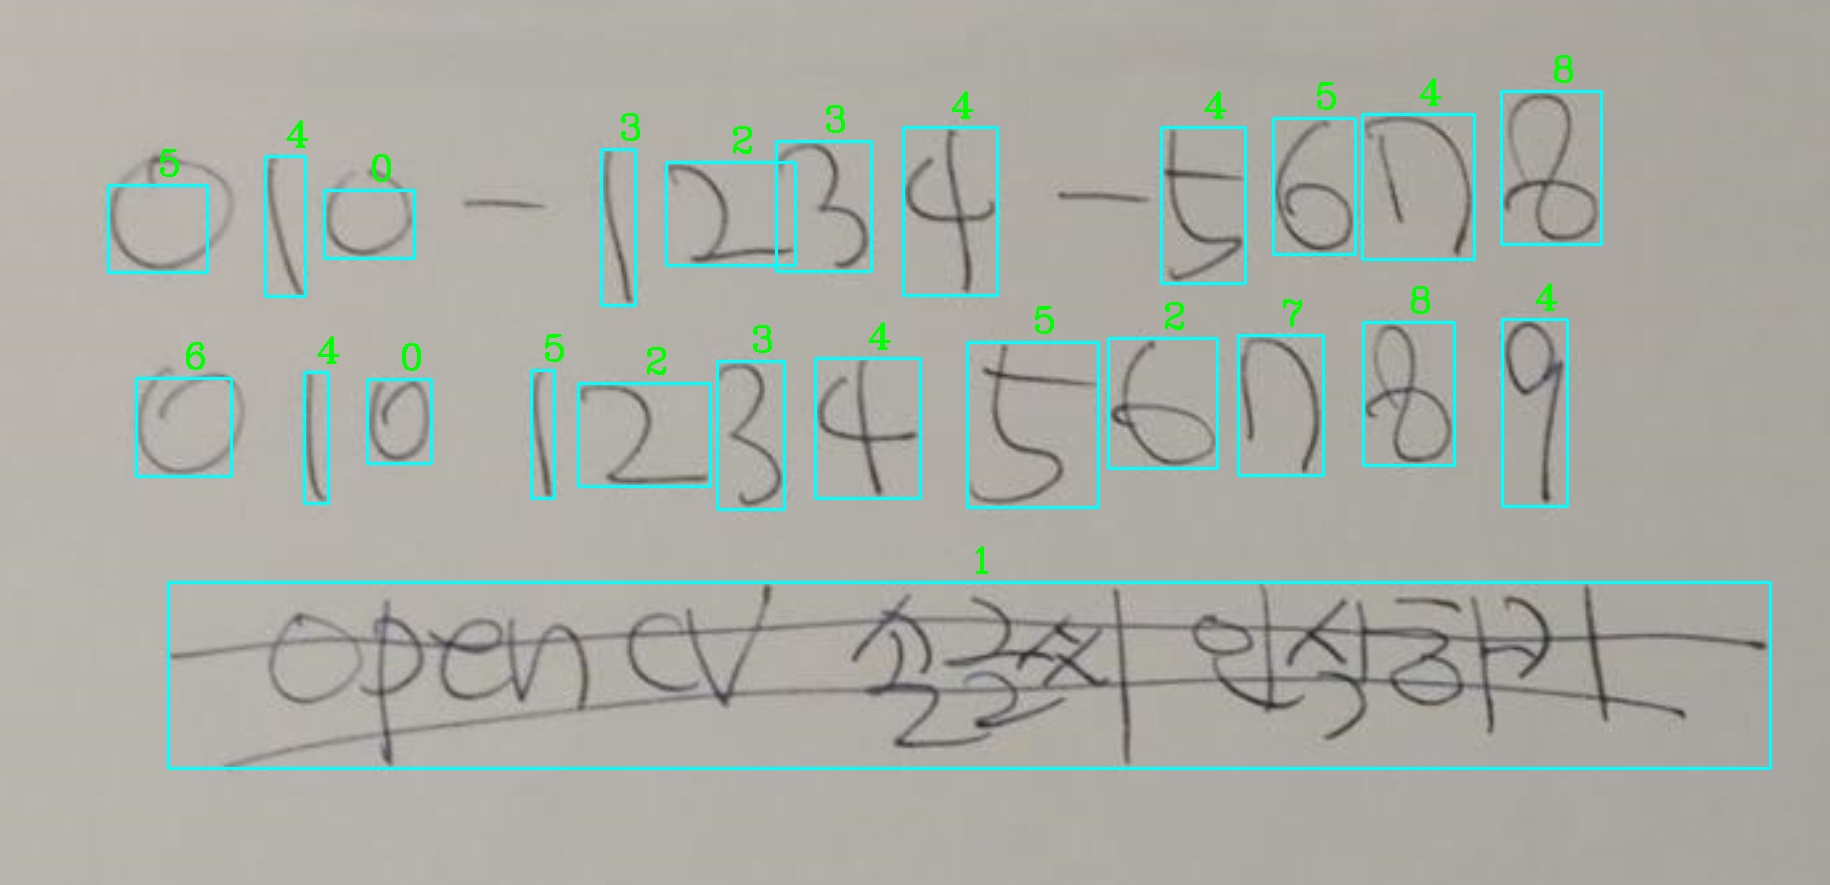 5 4 0 3 2 3 4 4 5 4 8
010-1234-5678
6 4 0 5 2 3 4 5 2 7 8 4
010 123456789
1
open CV 숫자 인식하기